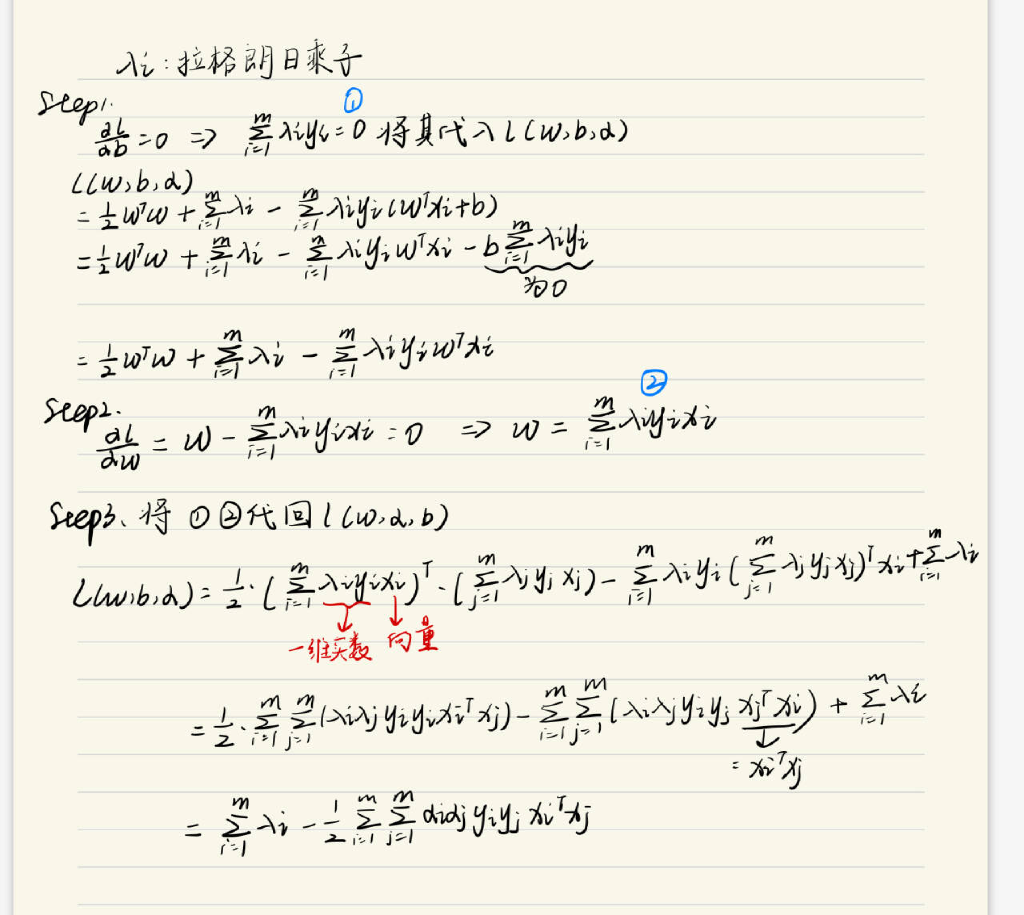 λi:拉格朗日乘子
Step1.
①
∂L/∂b=0 ⇒ Σ_{i=1}^{m} λiyi=0 将其代入L(w,b,α)
L(w,b,α)
=½wᵀw+Σ_{i=1}^{m} λi-Σ_{i=1}^{m} λiyi(wᵀxi+b)
=½wᵀw+Σ_{i=1}^{m} λi-Σ_{i=1}^{n} λiyiwᵀxi-bΣ_{i=1}^{m} λiyi
为0
=½wᵀw+Σ_{i=1}^{m} λi-Σ_{i=1}^{m} λiyiwᵀxi
②
Step2.
∂L/∂w=w-Σ_{i=1}^{m} λiyixi=0 ⇒ w=Σ_{i=1}^{m} λiyixi
Step3、将①②代回L(w,α,b)
L(w,b,α)=½·(Σ_{i=1}^{m} λiyixi)ᵀ·(Σ_{j=1}^{m} λjyjxj)-Σ_{i=1}^{m} λiyi(Σ_{j=1}^{m} λjyjxj)ᵀxi+Σ_{i=1}^{m} λi
一维实数 向量
=½·Σ_{i=1}^{m} Σ_{j=1}^{m}(λiλjyiyixiᵀxj)-Σ_{i=1}^{m} Σ_{j=1}^{m}(λiλjyiyjxjᵀxi)+Σ_{i=1}^{m} λi
=xiᵀxj
=Σ_{i=1}^{m} λi-½Σ_{i=1}^{m} Σ_{j=1}^{m} αiαjyiyjxiᵀxj